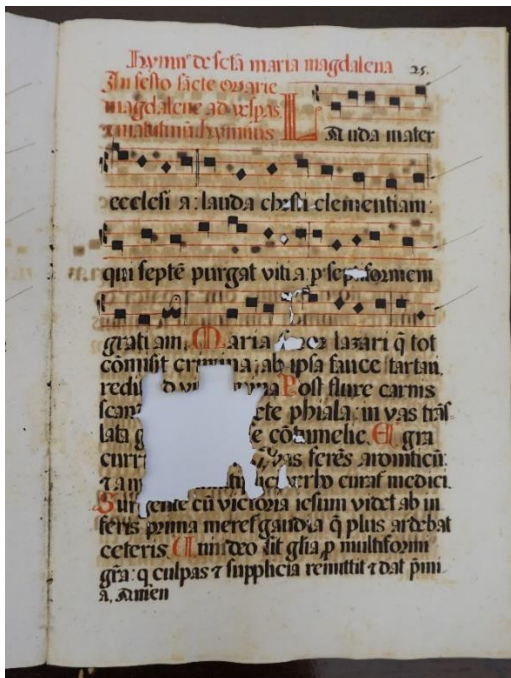 Hymn⁹ de sctā maria magdalena 25.
In festo sācte marie
magdalene ad vesꝑas
⁊ matutinū hymnus L
Auda mater
ecclesi a: lauda christi clementiam:
qui septē purgat viti a: ꝑ sep formem
grati am. Maria lazari q̄ tot
cōmisit crimina: ab ipsa fauce tartari.
redi d vi Post flure carnis
scan cte phiala: in vas trās
lata g e cōtumelie. El gra
curr vas ferēs aromaticū:
⁊ a m curat medici.
Surgente cū victoria iesum videt ab in
feris prima meret gaudia q̄ plus ardebat
ceteris. Uni deo sit gl̄ia ꝓ multiformi
gr̄a: q culpas ⁊ supplicia remittit ⁊ dat p̄mi
a. Amen